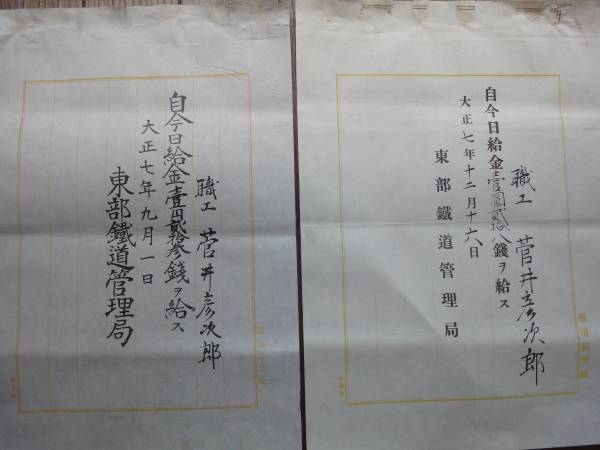 職工 菅井彦次郎
自今日給金壹円貳拾参銭ヲ給ス
大正七年九月一日
東部鐵道管理局
職工 菅井彦次郎
自今日給金壹圓貳拾八銭ヲ給ス
大正七年十二月十六日
東部鐵道管理局